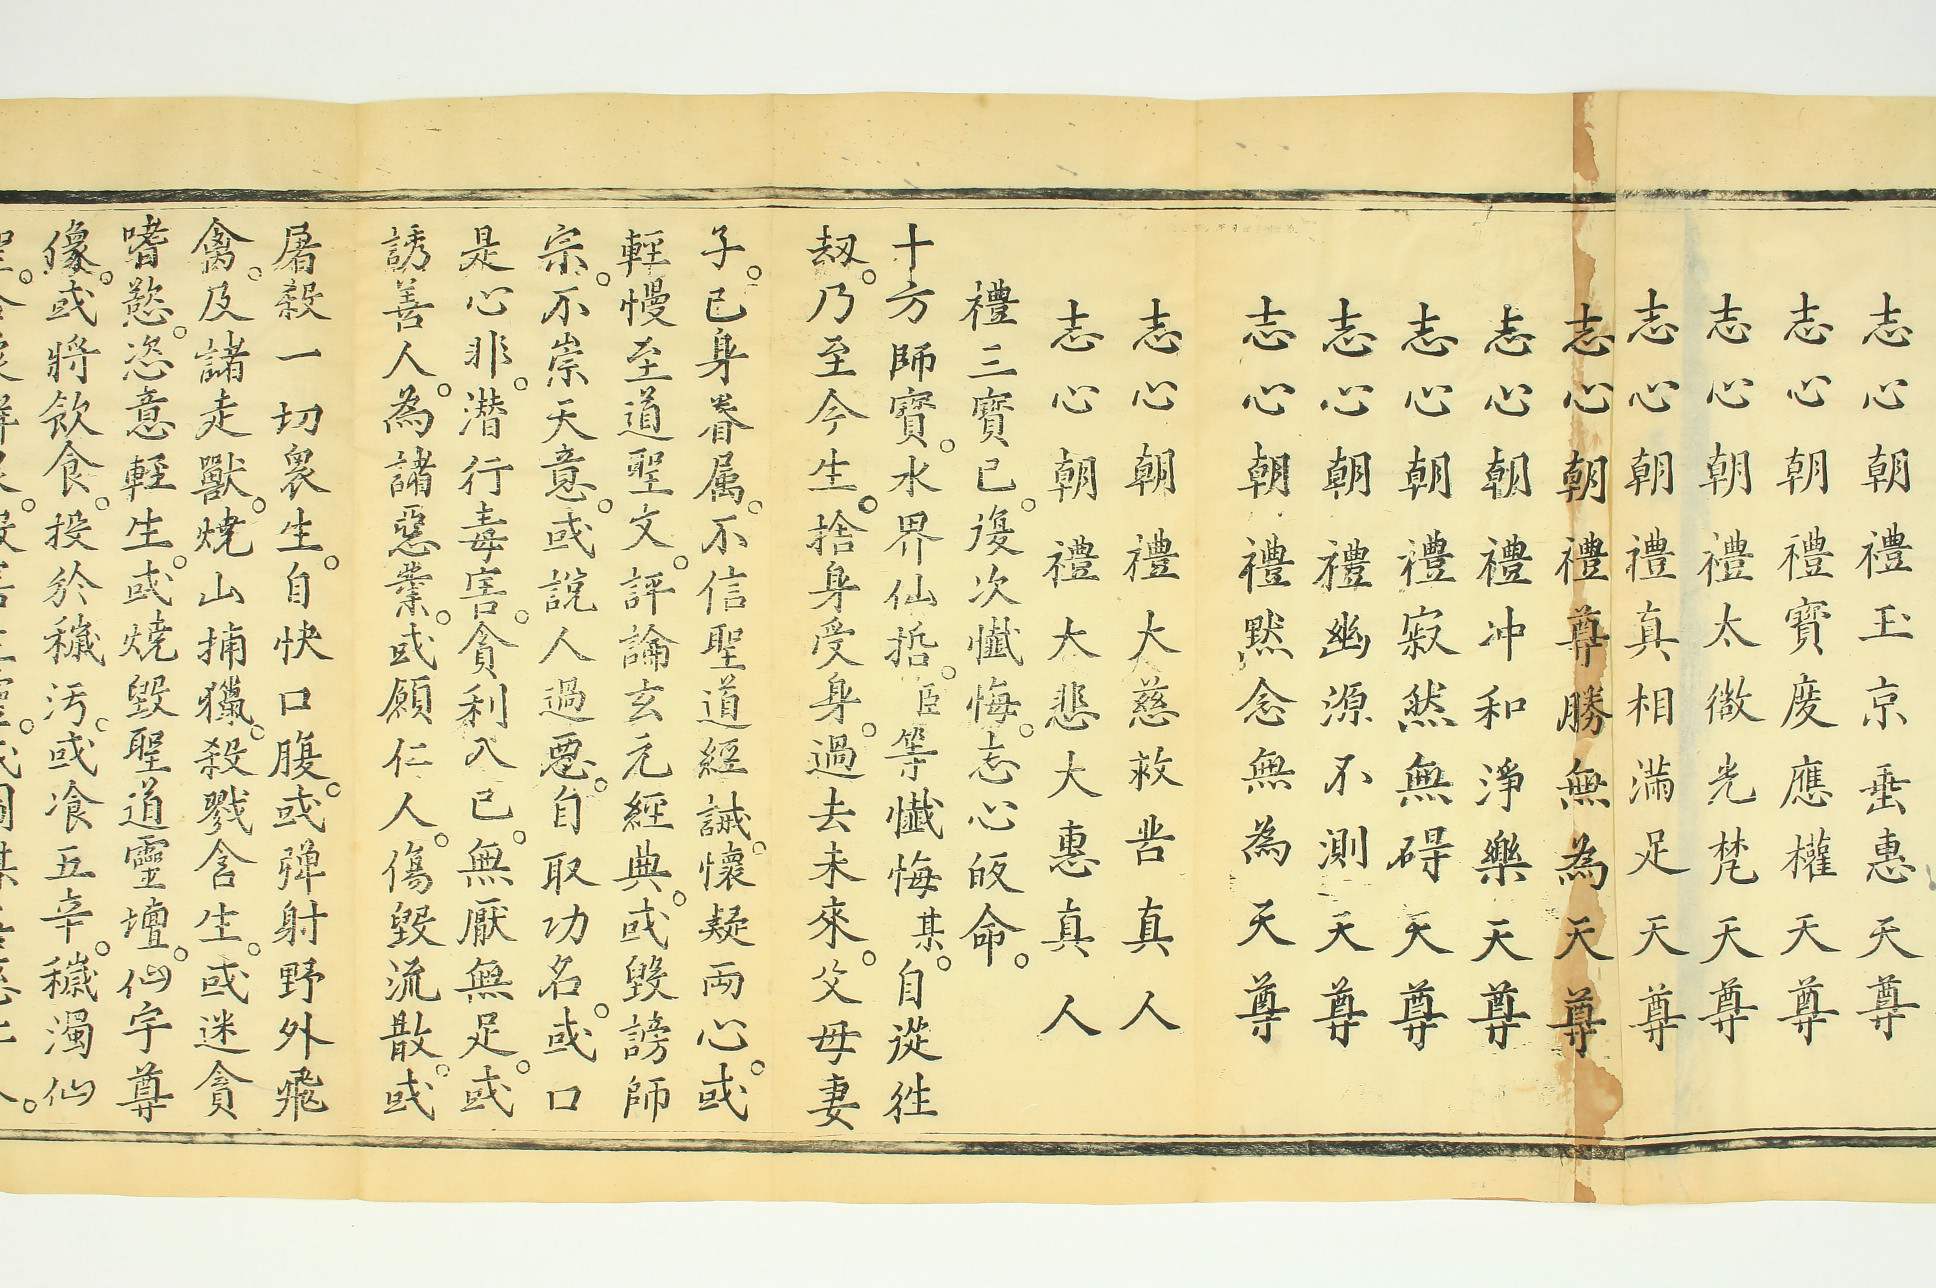 志心朝禮玉京垂惠天尊
志心朝禮寶度應權天尊
志心朝禮太微光梵天尊
志心朝禮真相滿足天尊
志心朝禮尊勝無為天尊
志心朝禮冲和淨樂天尊
志心朝禮寂然無碍天尊
志心朝禮幽源不測天尊
志心朝禮默念無為天尊
志心朝禮大慈救苦真人
志心朝禮大悲大惠真人
禮三寶已。復次懺悔。志心皈命。
十方師寶。水界仙哲。臣等懺悔某。自從往
刼。乃至今生。捨身受身。過去未來。父母妻
子。已身眷属。不信聖道經誡。懷疑兩心。或
輕慢至道聖文。評論玄元經典。或毀謗師
宗。不崇天意。或說人過惡。自取功名。或口
是心非。潛行毒害。貪利入已。無厭無足。或
誘善人。為諸惡業。或願仁人。傷毀流散。或
屠殺一切眾生。自快口腹。或彈射野外飛
禽。及諸走獸。燒山捕獵。殺戮含生。或迷貪
嗜慾。恣意輕生。或燒毀聖道靈壇。仙宇尊
像。或將飲食。投於穢汚。或飡五辛。穢濁仙